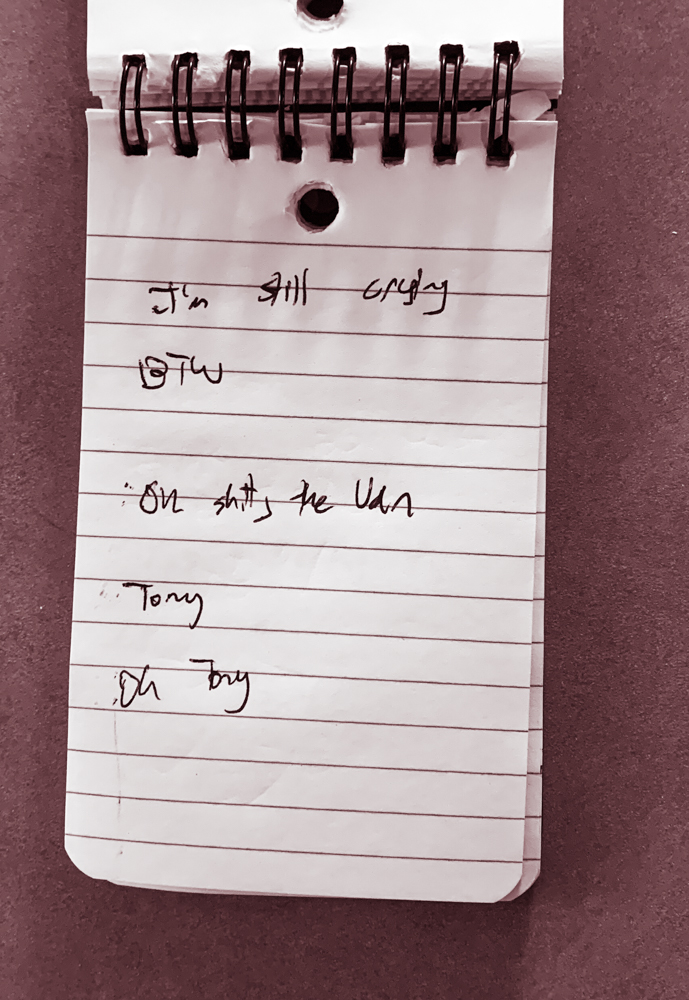 I'm still crying
BTW
Oh shitty the Van
Tony
Oh Tony